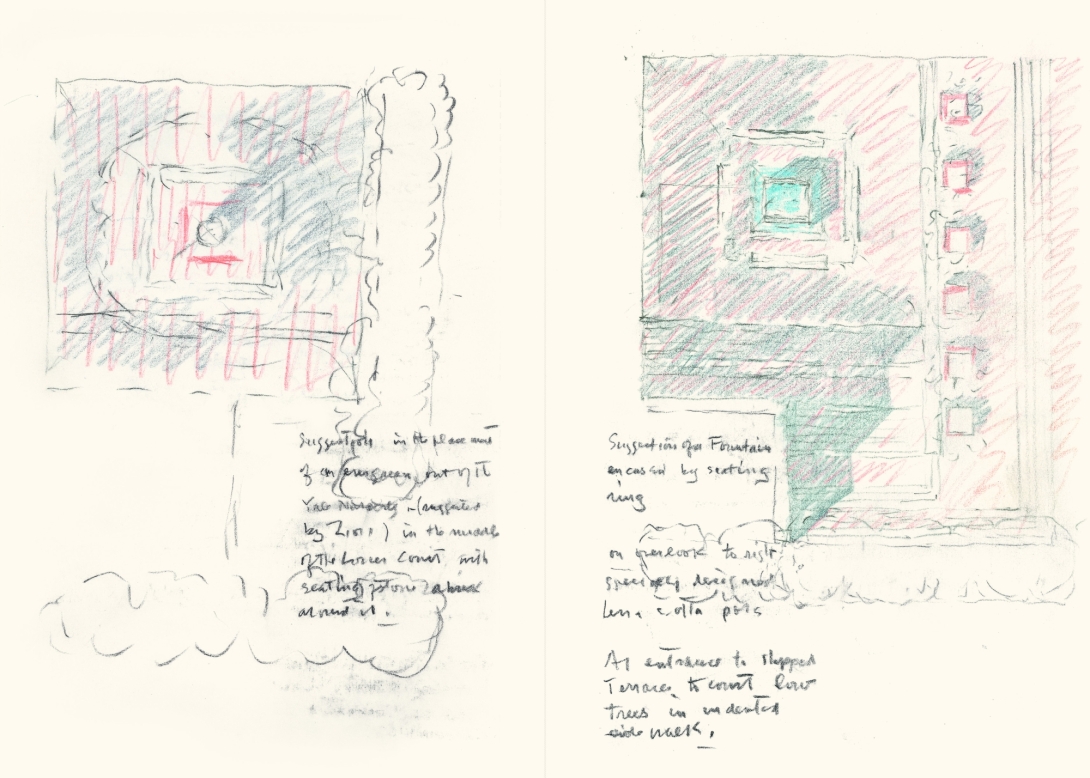 Suggestion in the placement
of an evergreen out of the
Tree Nursery (suggested
by Zion) in the middle
of the Lower Court with
seating stone
around it.
Suggestion of a Fountain
encased by seating
ring
on overlook to right
specially designed
terra cotta pots
At entrance to stepped
Terraces to court low
trees in indented
side walk.